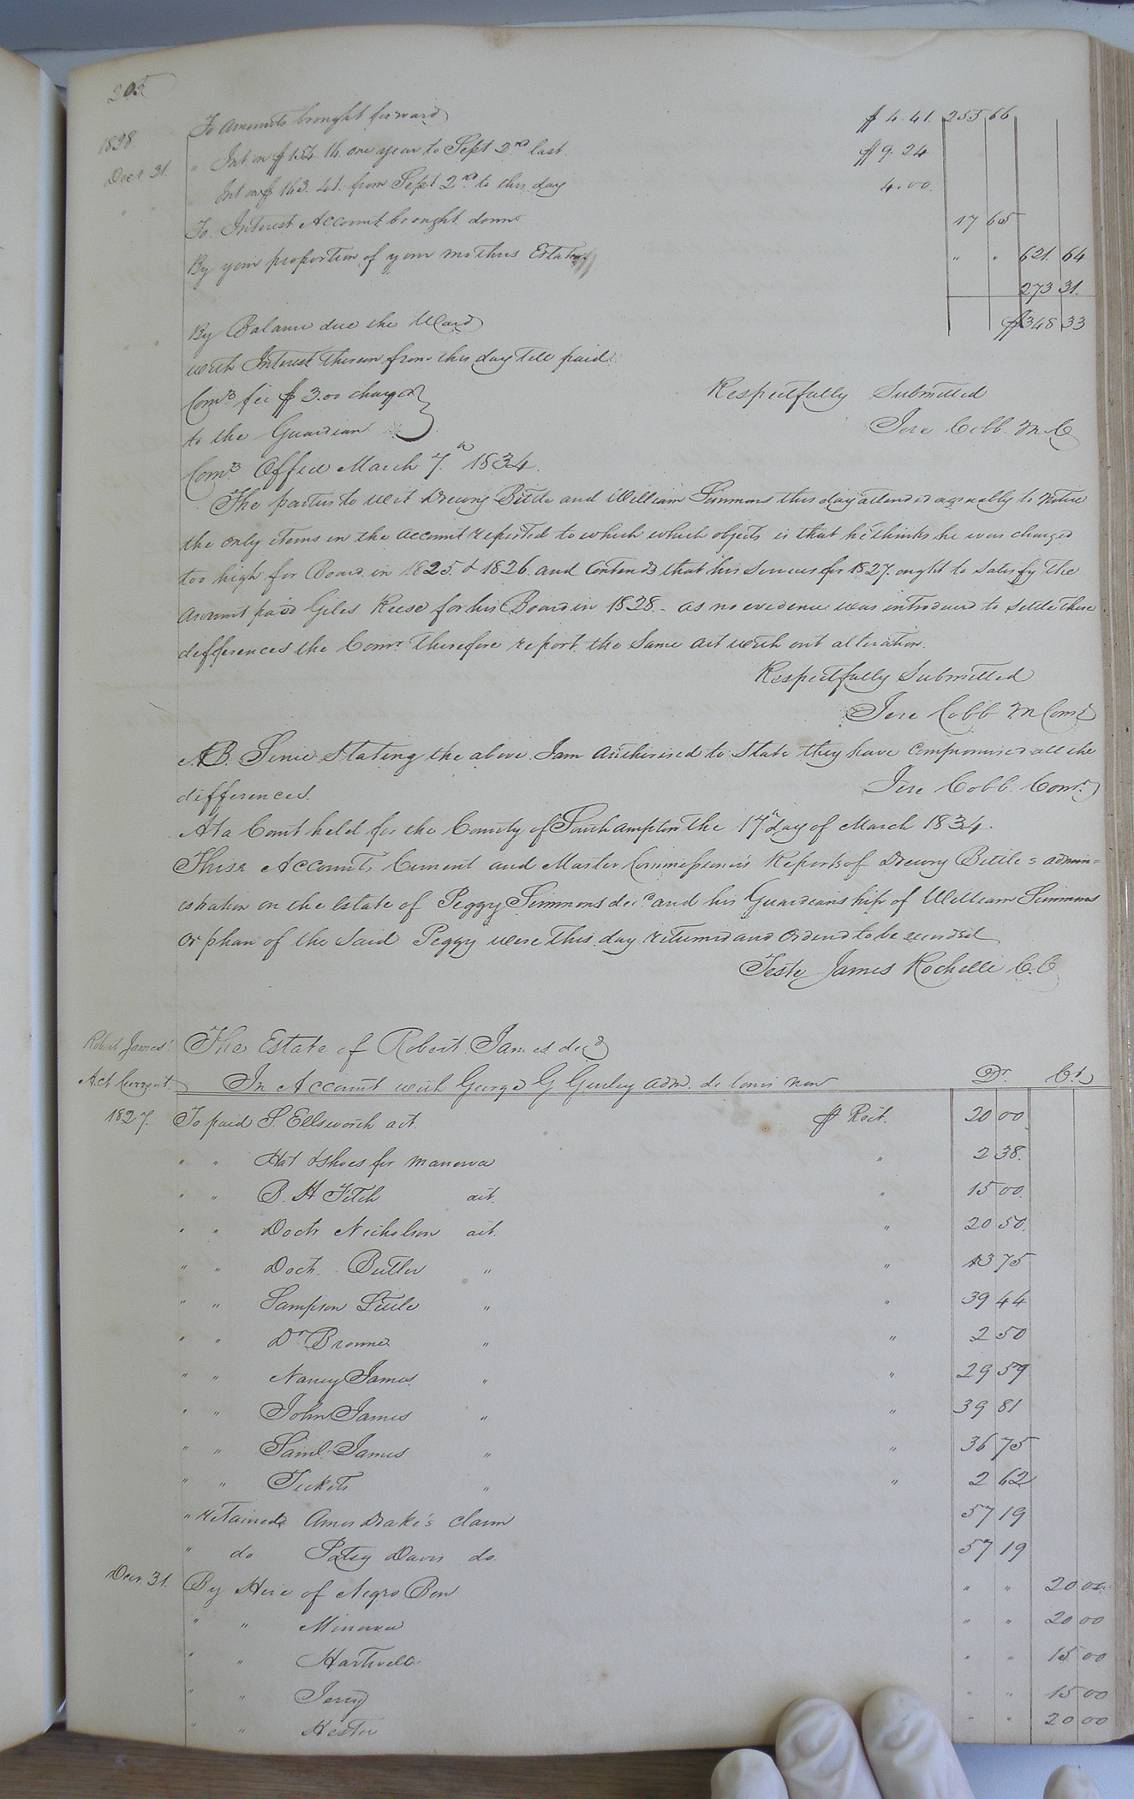 202
To Amounts brought forward $ 4.41. 255 66
1828
Decr 31. " Int on $ 154.16 one year to Sept 2nd last. $ 9.24
Int on $ 163.41 from Sept 2nd to this day 4.00.
To Interest Account brought down 17 65
By your proportion of your mothers Estate " " 621. 64
273 31.
By Balance due the Ward $348 33
with Interest thereon from this day till paid.
Comrs fee $ 3.00 charged Respectfully Submitted
to the Guardian Jere Cobb M C
Comrs Office March 7th 1834.
The parties to wit Drewry Bittle and William Simmons this day attended agreeably to Notice
the only items in the account reported to which which objects is that he thinks he was charged
too high for Board in 1825 & 1826 and Contends that his services for 1827. ought to Satisfy the
amount paid Giles Reese for his Board in 1828 - as no evidence was introduced to settle these
differences the Comr. therefore report the same act with out alteration.
Respectfully Submitted
Jere Cobb M Comr
NB. Since Stating the above I am authorised to State they have Compromised all the
differences. Jere Cobb Comr.
At a Court held for the County of Southampton the 17th day of March 1834.
These Accounts Current and Master Commissioners Reports of Drewry Bittle's admin=
istration on the Estate of Peggy Simmons decd and his Guardianship of William Simmons
orphan of the Said Peggy were this day returned and Ordered to be recorded
Teste James Rochelle C.C
Robert James' The Estate of Robert James decd
Act Current In Account with George G Gurley adm. de bonis non Dr. Cr.
1827. To paid S. Ellsworth act. $ Rect. 20 00
" " Hat & shoes for manerva " 2 38.
" " B. H Fitch act. " 15 00.
" " Doctr Nicholson act. " 20 50.
" " Doctr. Butler " " 13 75
" " Sampson Little " " 39 44
" " Dr Browne " " 2 50
" " Nancy James " " 29 59
" " John James " " 39 81
" " Saml. James " " 36 75
" " Tickets " " 2 62
" retained Amos Drake's claim 57 19
" do Patsy Davis do. 57 19
Decr. 31. By Hire of Negro Ben " " 20 00.
" " Minerva " " 20 00
" " Hartwell " " 15 00
" " Jerry " " 15 00
" " Hester " " 20 00